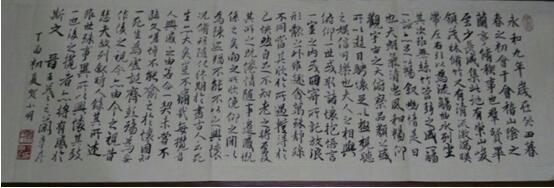 永和九年歲在癸丑暮
春之初會于會稽山陰之
蘭亭脩稧事也群賢畢
至少長咸集此地有崇山峻
領茂林脩竹又有清流激湍映
帶左右引以為流觴曲水列坐
其次雖無絲竹管弦之盛一觴
一詠亦足以暢敘幽情是日
也天朗氣清惠風和暢仰
觀宇宙之大俯察品類之盛
所以遊目騁懷足以極視聽
之娛信可樂也夫人之相與
俯仰一世或取諸懷抱悟言
一室之內或因寄所託放浪
形骸之外雖趣舍萬殊靜躁
不同當其欣於所遇暫得於
己快然自足不知老之將至及
其所之既惓情隨事遷感慨
係之矣向之所欣俛仰之閒以
為陳迹猶不能不以之興懷
況脩短隨化終期於盡古人云死
生亦大矣豈不痛哉每攬昔
人興感之由若合一契未嘗不
臨文嗟悼不能喻之於懷固知
一死生為虛誕齊彭殤為妄
作後之視今亦由今之視昔
悲夫故列敘時人錄其所述
雖世殊事異所以興懷其致
一也後之攬者亦將有感於
斯文 晉王羲之蘭亭序
丁酉初夏賀小明